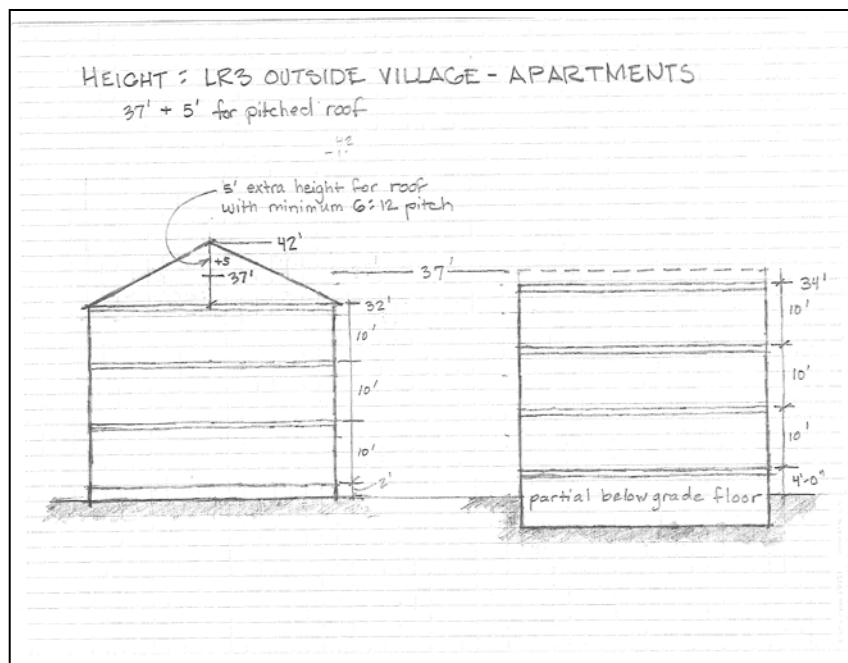 HEIGHT : LR3 OUTSIDE VILLAGE - APARTMENTS
37' + 5' for pitched roof
42
5' extra height for roof
with minimum 6:12 pitch
42'
+5
37'
37'
32'
10'
10'
10'
2'
34'
10'
10'
10'
4'-0"
partial below grade floor